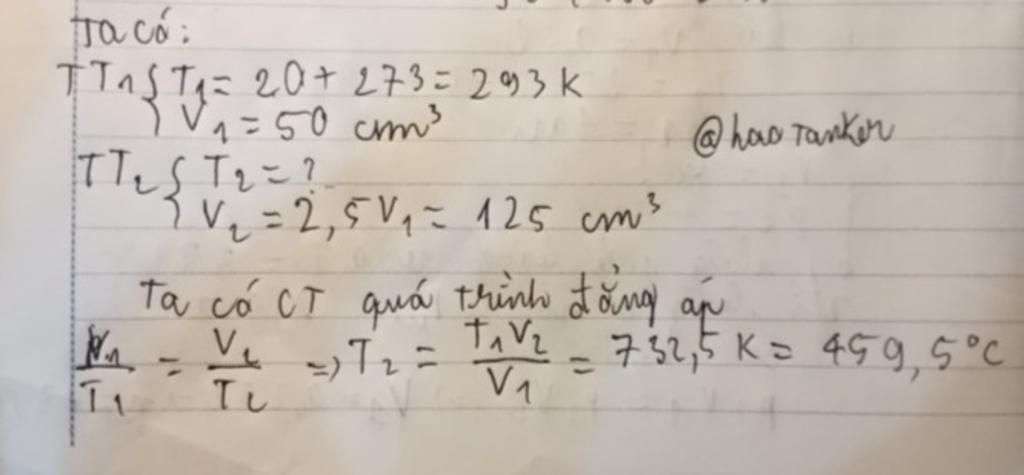 Ta có:
TT₁ { T₁ = 20 + 273 = 293 K
V₁ = 50 cm³
@haoTanker
TT₂ { T₂ = ?
V₂ = 2,5V₁ = 125 cm³
Ta có CT quá trình đẳng áp
V₁/T₁ = V₂/T₂ => T₂ = T₁V₂/V₁ = 732,5 K = 459,5°C